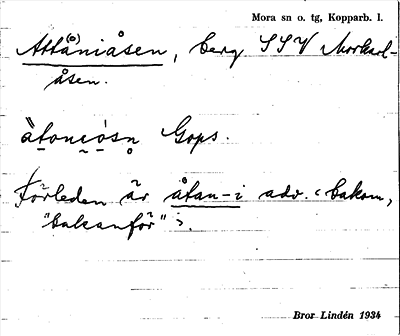 Mora sn o. tg, Kopparb. l.
Attå(ö)niåsen, berg SSV Morkarl-
åsen.
ą̊toniósn Gops.
Förleden är åtan-i adv. ‹bakom,
"bakanför"›.
Bror Lindén 1934